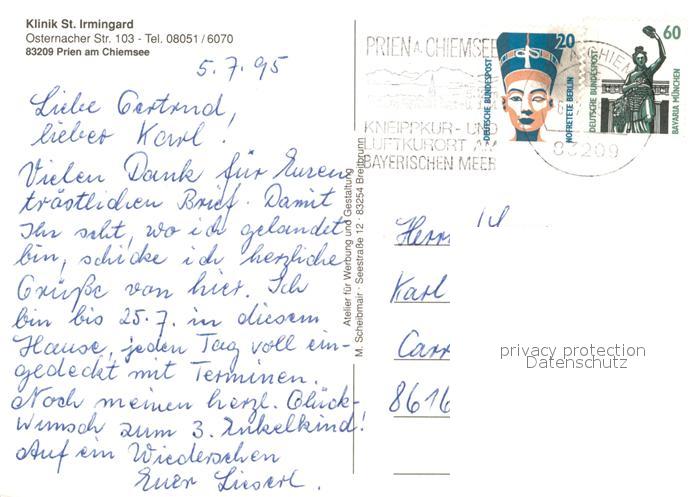 Klinik St. Irmingard
Osternacher Str. 103 - Tel. 08051/6070
83209 Prien am Chiemsee
5.7.95
Liebe Gertrud,
lieber Karl!
Vielen Dank für Euren
tröstlichen Brief. Damit
Ihr seht, wo ich gelandet
bin, schicke ich herzliche
Grüße von hier. Ich
bin bis 25.7. in diesem
Hause, jeden Tag voll ein-
gedeckt mit Terminen.
Noch meinen herzl. Glück-
wunsch zum 3. Enkelkind!
Auf ein Wiedersehen
Euer Lieserl.
Atelier für Werbung und Gestaltung
M. Scheibmair · Seestraße 12 · 83254 Breitbrunn
PRIEN A. CHIEMSEE
KNEIPPKUR- UND
LUFTKURORT AM
BAYERISCHEN MEER
20
DEUTSCHE BUNDESPOST
NOFRETETE BERLIN
60
DEUTSCHE BUNDESPOST
BAVARIA MÜNCHEN
A. CHIEM
83209
Herrn
Karl
Carr
8616
privacy protection
Datenschutz